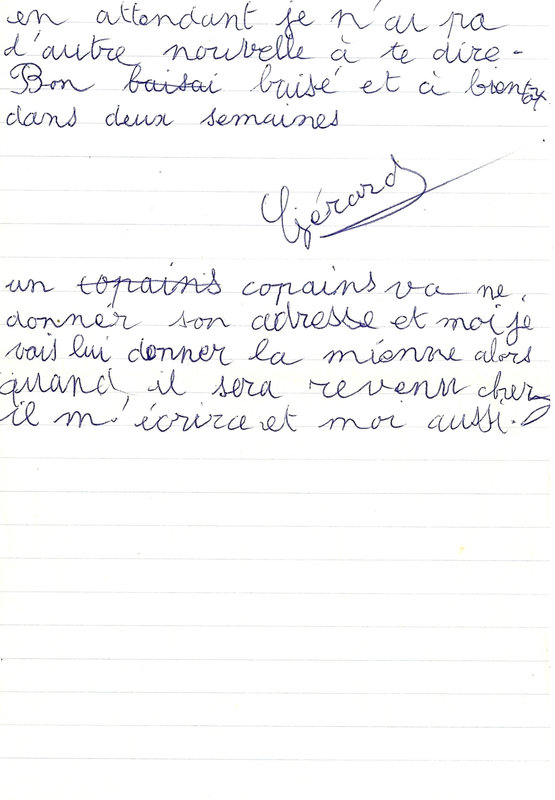 en attendant je n'ai pa
d'autre nouvelle à te dire -
Bon baisai baisé et à bientôt
dans deux semaines
Gérard
un copains copains va ne
donnér son adresse et moi je
vais lui donner la mienne alors
quand, il sera revenu cher
il m'écrira et moi aussi.